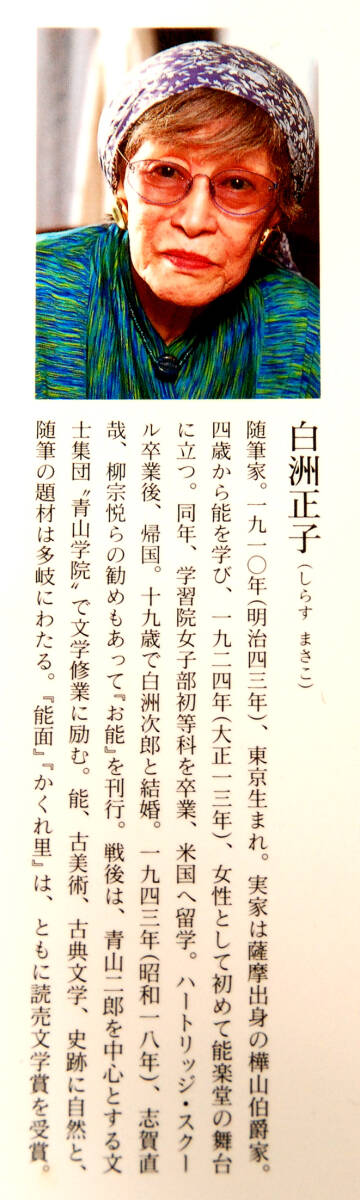 白洲正子（しらす まさこ）
随筆家。一九一〇年（明治四三年）、東京生まれ。実家は薩摩出身の樺山伯爵家。
四歳から能を学び、一九二四年（大正一三年）、女性として初めて能楽堂の舞台
に立つ。同年、学習院女子部初等科を卒業、米国へ留学。ハートリッジ・スクー
ル卒業後、帰国。十九歳で白洲次郎と結婚。一九四三年（昭和一八年）、志賀直
哉、柳宗悦らの勧めもあって『お能』を刊行。戦後は、青山二郎を中心とする文
士集団〝青山学院〟で文学修業に励む。能、古美術、古典文学、史跡に自然と、
随筆の題材は多岐にわたる。『能面』『かくれ里』は、ともに読売文学賞を受賞。